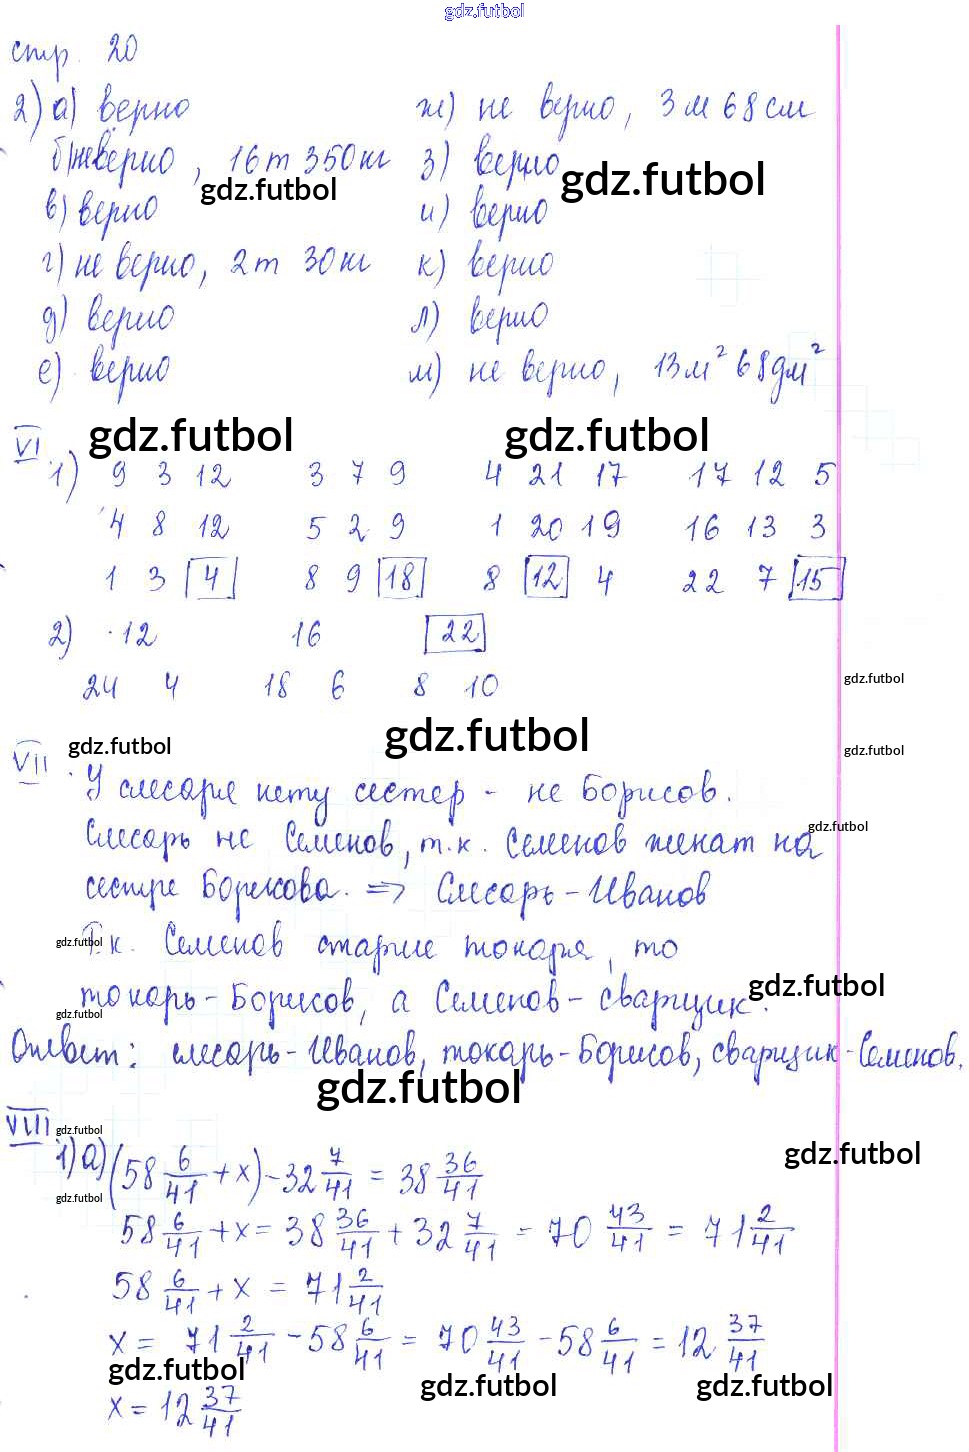 gdz.futbol
стр. 20
2) а) верно ж) не верно, 3 м 68 см
б) неверно, 16 т 350 кг з) верно
gdz.futbol gdz.futbol
в) верно и) верно
г) не верно, 2 т 30 кг к) верно
д) верно л) верно
е) верно м) не верно, 13 м² 68 дм²
gdz.futbol gdz.futbol
VI 1) 9 3 12 3 7 9 4 21 17 17 12 5
4 8 12 5 2 9 1 20 19 16 13 3
1 3 4 8 9 18 8 12 4 22 7 15
2) 12 16 22
24 4 18 6 8 10
gdz.futbol
gdz.futbol gdz.futbol gdz.futbol
VII У слесаря нету сестер - не Борисов.
gdz.futbol
Слесарь не Семенов, т.к. Семенов женат на
сестре Борисова. => Слесарь - Иванов
gdz.futbol
Т.к. Семенов старше токаря, то
токарь - Борисов, а Семенов - сварщик.
gdz.futbol gdz.futbol
Ответ: слесарь - Иванов, токарь - Борисов, сварщик - Семенов.
gdz.futbol
VIII gdz.futbol
1) а) (58 6/41 + x) - 32 7/41 = 38 36/41
gdz.futbol gdz.futbol
58 6/41 + x = 38 36/41 + 32 7/41 = 70 43/41 = 71 2/41
58 6/41 + x = 71 2/41
x = 71 2/41 - 58 6/41 = 70 43/41 - 58 6/41 = 12 37/41
gdz.futbol gdz.futbol gdz.futbol
x = 12 37/41